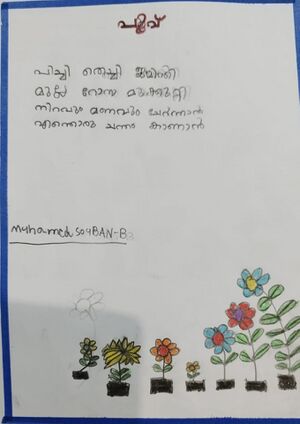 പൂവ്
പിച്ചി തെച്ചി ജമന്തി
മുല്ല റോസ മുക്കുറ്റി
നിറവും മണവും ചേർന്നാൽ
എന്തൊരു ചന്തം കാണാൻ
Muhamed SoyBAN-B